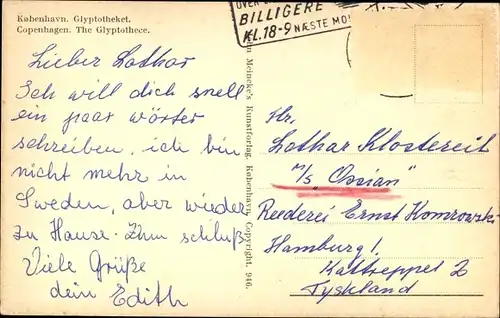 København. Glyptotheket.
Copenhagen. The Glyptothece.
BILLIGERE
KL.18-9 NÆSTE MO
Lieber Lothar
Ich will dich snell
ein paar wörter
schreiben, ich bin
nicht mehr in
Sweden, aber wieder
zu Hause. Zum schluß
Viele Grüße
dein Edith
Meincke's Kunstforlag, København, Copyright. 946.
Hr.
Lothar Klostereit
M/S "Ossian"
Reederei Ernst Komrowski
Hamburg!
Kattreppel 2
Tyskland